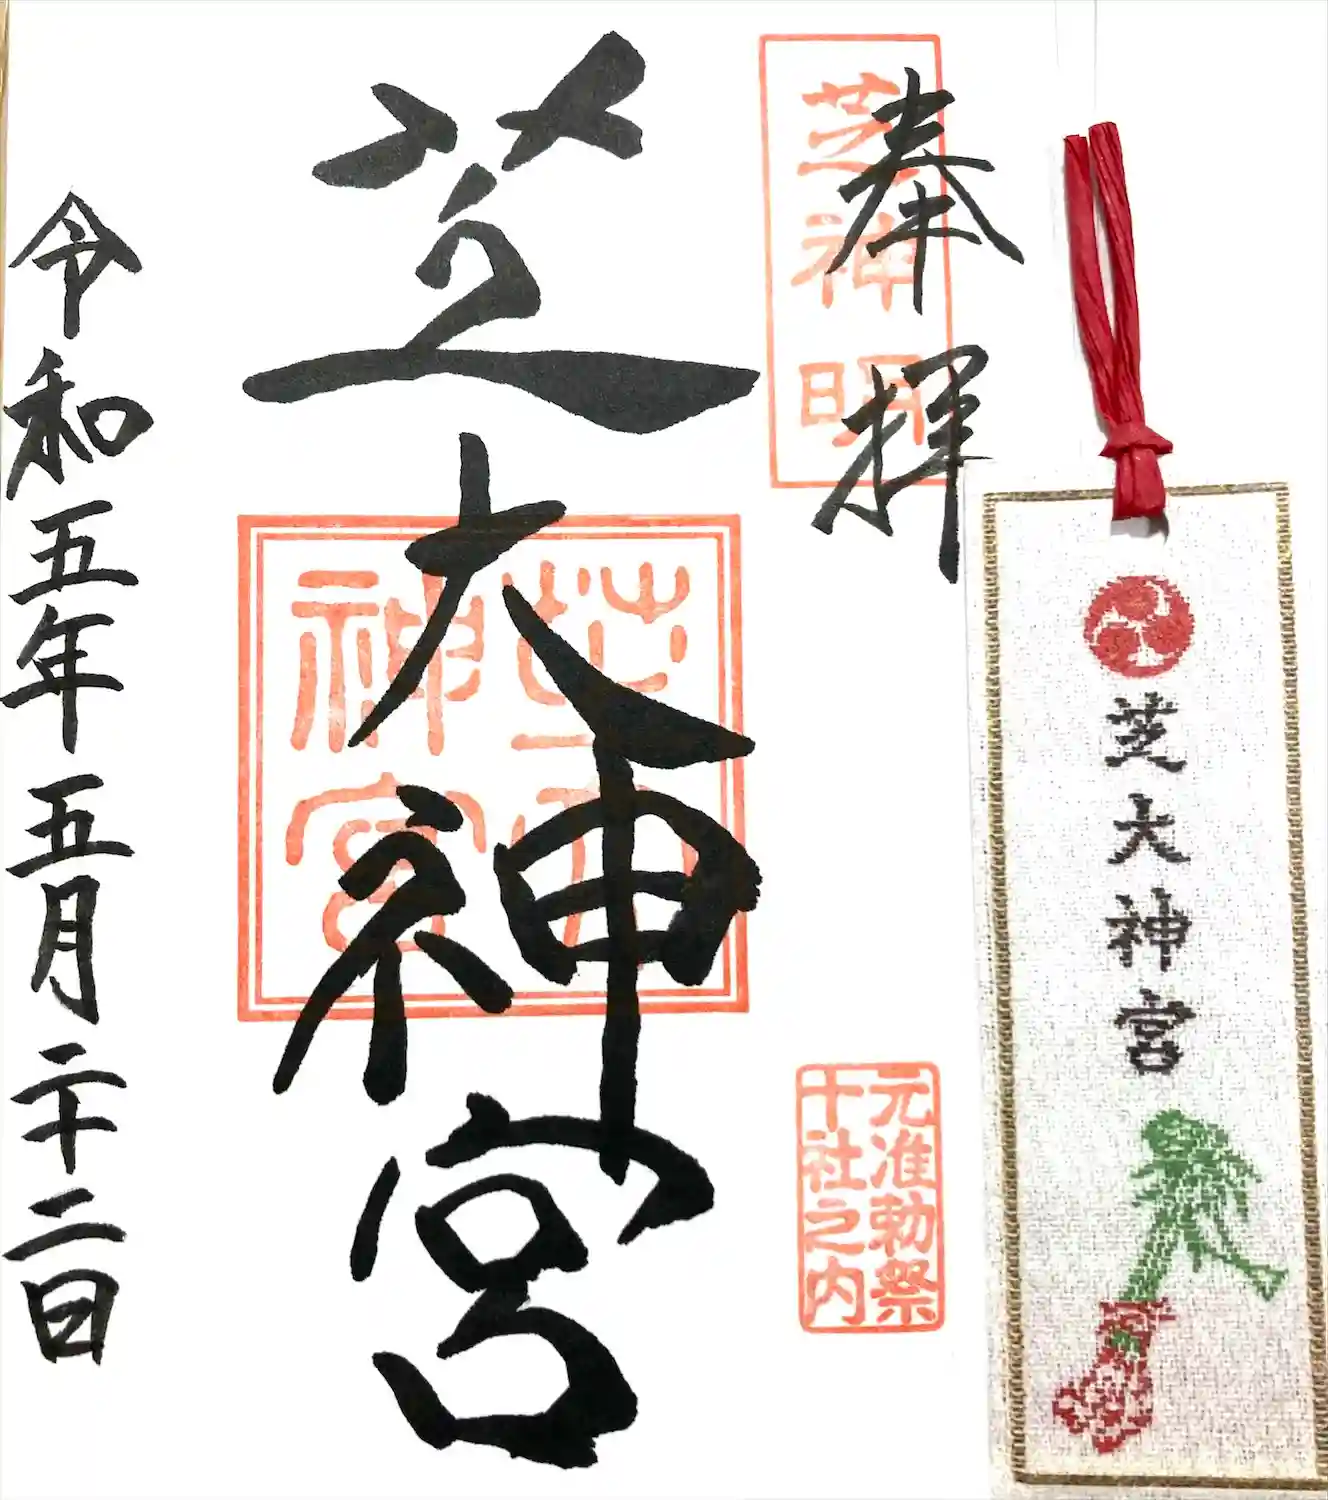 奉拝
芝神明
元准勅祭
十社之内
芝大神宮
芝大
神宮
令和五年五月二十二日
芝大神宮